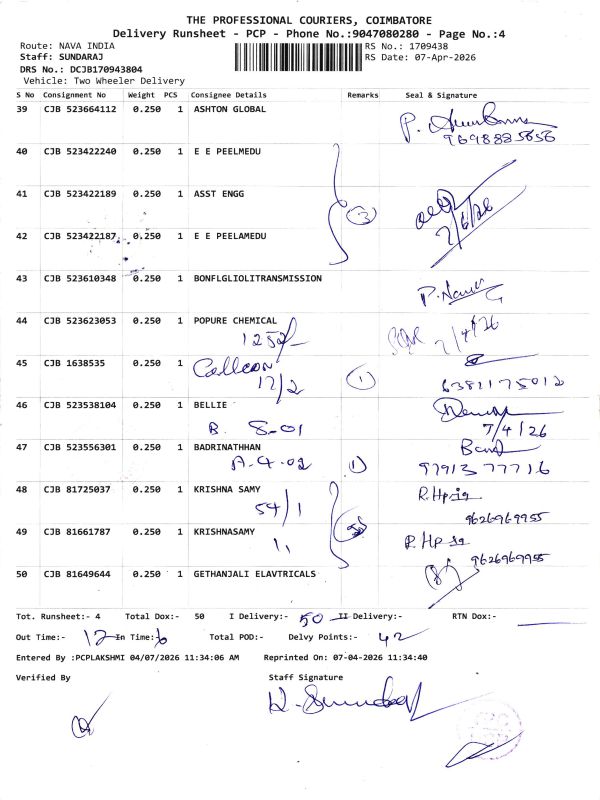 THE PROFESSIONAL COURIERS, COIMBATORE
Delivery Runsheet - PCP - Phone No.:9047080280 - Page No.:4
Route: NAVA INDIA RS No.: 1709438
Staff: SUNDARAJ RS Date: 07-Apr-2026
DRS No.: DCJB170943804
Vehicle: Two Wheeler Delivery
S No Consignment No Weight PCS Consignee Details Remarks Seal & Signature
39 CJB 523664112 0.250 1 ASHTON GLOBAL
9698885656
40 CJB 523422240 0.250 1 E E PEELMEDU
41 CJB 523422189 0.250 1 ASST ENGG 3
42 CJB 523422187 0.250 1 E E PEELAMEDU
43 CJB 523610348 0.250 1 BONFLGLIOLITRANSMISSION
44 CJB 523623053 0.250 1 POPURE CHEMICAL 7/4/26
45 CJB 1638535 0.250 1 1
12/2 6381175012
46 CJB 523538104 0.250 1 BELLIE
B. 8-01 7/4/26
47 CJB 523556301 0.250 1 BADRINATHHAN
A.4.02 1 9791377716
48 CJB 81725037 0.250 1 KRISHNA SAMY
54/1 9626969955
49 CJB 81661787 0.250 1 KRISHNASAMY
9626969955
50 CJB 81649644 0.250 1 GETHANJALI ELAVTRICALS
Tot. Runsheet:- 4 Total Dox:- 50 I Delivery:- 50 II Delivery:- RTN Dox:-
Out Time:- 12 In Time:- 6 Total POD:- Delvy Points:- 42
Entered By :PCPLAKSHMI 04/07/2026 11:34:06 AM Reprinted On: 07-04-2026 11:34:40
Verified By Staff Signature